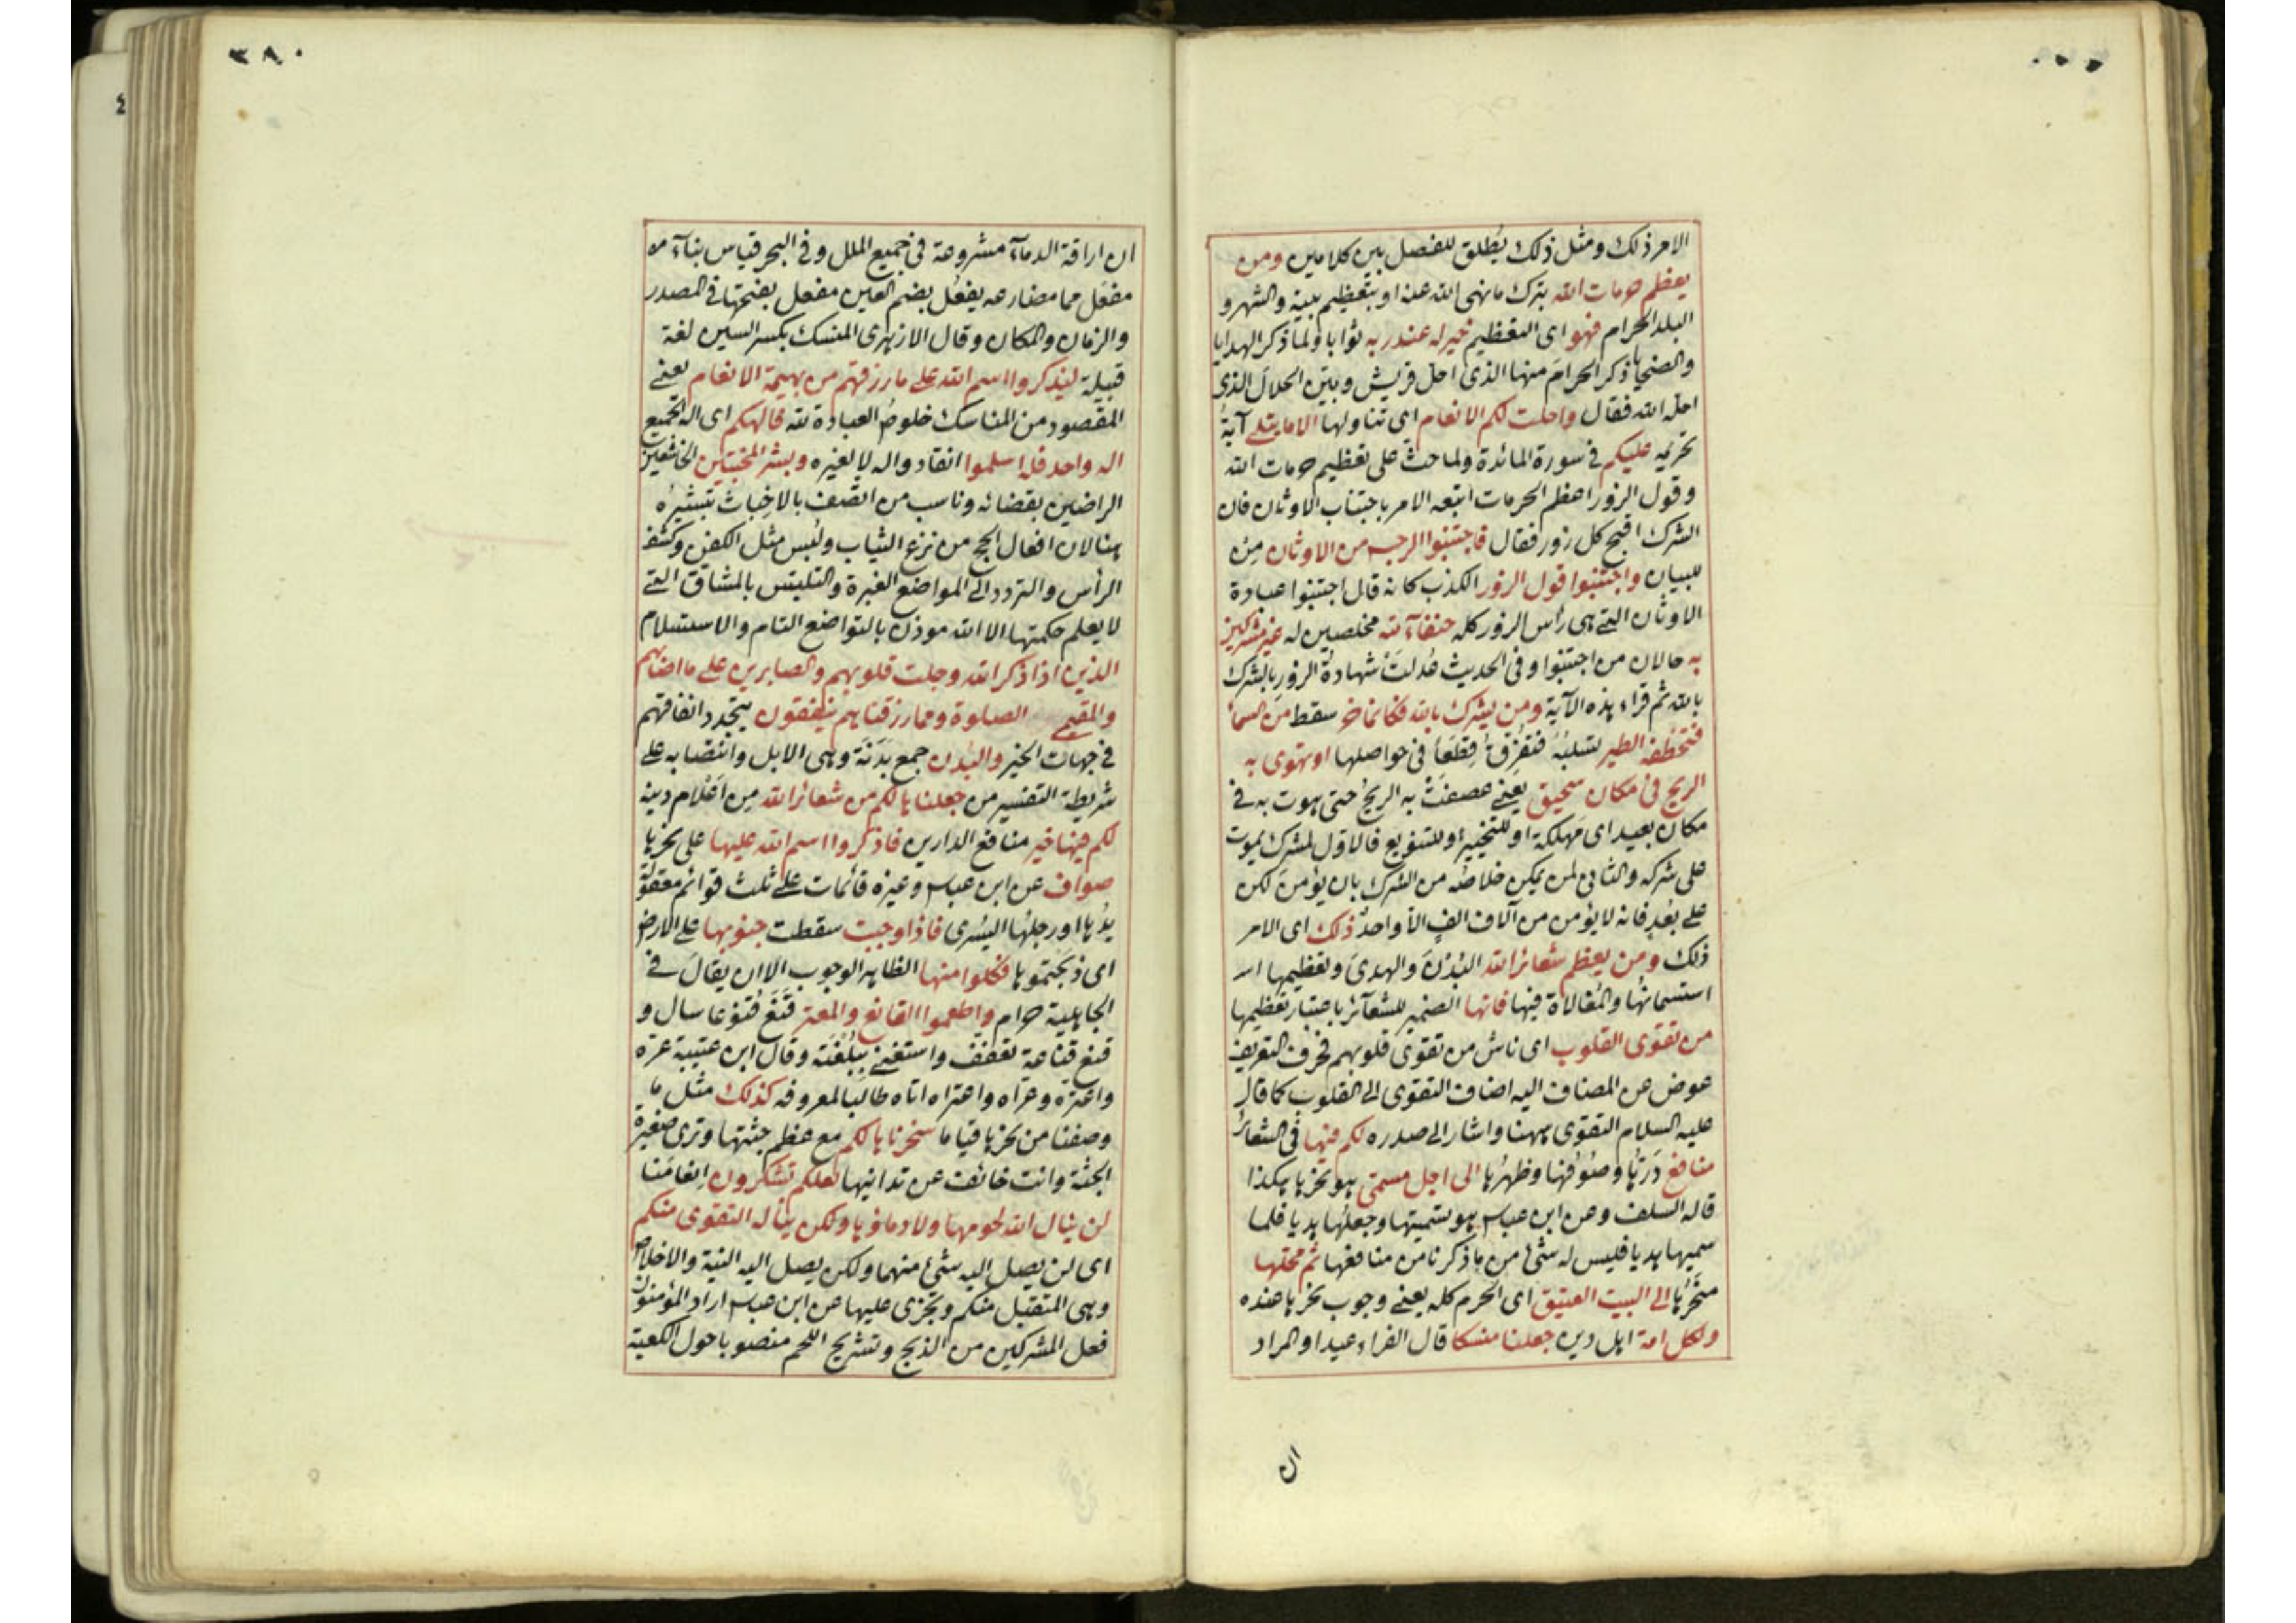 الامر ذلك ومثل ذلك يُطلق للفصل بين كلامين ومن
يعظم حرمات الله بترك ما نهى الله عنه او بتعظيم بيته والشهر و
البلد الحرام فهو اى التعظيم خير له عند ربه ثوابا ولما ذكر الهدايا
والضحايا ذكر الحرام منها الذى احل قريش وبيّن الحلال الذى
احله الله فقال واحلت لكم الانعام اى تناولها الا ما يتلى آية
تحريمه عليكم فى سورة المائدة ولما حث على تعظيم حرمات الله
وقول الزور اعظم الحرمات اتبعه الامر باجتناب الاوثان فان
الشرك اقبح كل زور فقال فاجتنبوا الرجس من الاوثان مِن
للبيان واجتنبوا قول الزور الكذب كانه قال اجتنبوا عبادة
الاوثان التى هى رأس الزور كله حنفآء لله مخلصين له غير مشركين
به حالان من اجتنبوا وفى الحديث عُدلَتْ شهادةُ الزور بالشرك
بالله ثم قراء هذه الآية ومن يشرك بالله فكانما خر سقط من السماء
فتخطفه الطير تسلبُهُ فتُفَرِّقُ قِطَعًا فى حواصلها او تهوى به
الريح فى مكان سحيق يعنى عصفَتْ به الريح حتى هوت به فى
مكان بعيد اى مَهلكة او للتخيير او للتنويع فالاول لمشرك يموت
على شركه والثانى لمن يمكن خلاصُه من الشرك بان يؤمن لكن
على بُعْدٍ فانه لا يؤمن من آلاف الفٍ الا واحدٌ ذلك اى الامر
ذلك ومن يعظم شعائر الله البُدْنَ والهدىَ وتعظيمها
استسمانُها والمُغالاة فيها فانها الضمير للشعآئر باعتبار تعظيمها
من تقوى القلوب اى ناش من تقوى قلوبهم فحرف التعريف
عوض عن المضاف اليه اضاف التقوى الى القلوب كما قال
عليه السلام التقوى ههنا واشار الى صدره لكم فيها فى الشعائر
منافع دَرّها وصُوفها وظهرُها الى اجل مسمّى هو نحرها هكذا
قاله السلف وعن ابن عباس هو تسميتها وجعلُها هديا فلما
سميها هديا فليس له شئ من ما ذكرنا من منافعها ثم محلّها
مَنْحَرُها الى البيت العتيق اى الحرم كله يعنى وجوب نحرها عنده
ولكل امة اهل دين جعلنا منسكا قال الفراء عيدا والمراد
ان
٣٨٠
ان اراقة الدمآء مشروعة فى جميع الملل وفى البحر قياس بنآء
مفعَل مما مضارعه يفعُل بضم العين مفعل بفتحها فى المصدر
والزمان والمكان وقال الازهرى المنسك بكسر السين لغة
قبيلة ليذكروا اسم الله على ما رزقهم من بهيمة الانعام يعنى
المقصود من المناسك خلوصُ العبادة لله فالهكم اى اله الجميع
اله واحد فله اسلموا انقادوا له لا لغيره وبشر المخبتين الخاشعين
الراضين بقضائه وناسب من اتّصف بالاخبات تبشيرُه
هنا لان افعال الحج من نزع الثياب ولُبس مثل الكفن وكشف
الرأس والتردد الى المواضع الغبرة والتلبّس بالمشاق التى
لا يعلم حكمتها الا الله موذن بالتواضع التام والاستسلام
الذين اذا ذكر الله وجلت قلوبهم والصابرين على ما اصابهم
والمقيمى الصلوة ومما رزقناهم ينفقون يتجدد انفاقهم
فى جهات الخير والبُدن جمع بَدَنَة وهى الابل وانتصابه على
شريطة التفسير من جعلناها لكم من شعائر الله مِن اَعْلام دينه
لكم فيها خير منافع الدارين فاذكروا اسم الله عليها على نحرها
صواف عن ابن عباس وغيره قائمات على ثلث قوائم معقولة
يدُها او رجلُها اليُسرى فاذا وجبت سقطت جنوبها على الارض
اى ذبحتموها فكلوا منها الظاهر الوجوب الا ان يقالَ فى
الجاهلية حرام واطعموا القانع والمعتر قَنَعَ قُنوعا سال و
قنع قناعة تعفّف واستغنى ببُلْغَته وقال ابن عتيبة عرّه
واعترّه وعراه واعتراه اتاه طالبا لمعروفه كذلك مثل ما
وصفنا من نحرها قياما سخرناها لكم مع عظم جثتها وترى صغيرة
الجثة وانت خائف عن تدانيها لعلكم تشكرون اِنعامَنا
لن ينال الله لحومها ولا دماؤها ولكن يناله التقوى منكم
اى لن يصل اليه شئ منهما ولكن يصل اليه النية والاخلاص
وهى المتقبل منكم ويجزى عليها عن ابن عباس اراد المؤمنون
فعل المشركين من الذبح وتشريح اللحم منصوبا حول الكعبة